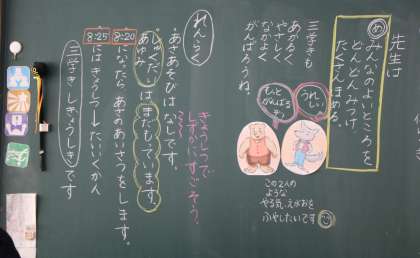 先生は
め
みんなのよいところを
どんどんみつけ、
たくさんほめる。
三学きも
あかるく
やさしく
なかよく
がんばろうね。
もっと
がんばろう
うれしい
この2人の
ような
やる気、えがおを
ふやしたいです
れんらく
あさあそびはなしです。
きょうしつで
しずかにすごそう。
しゅくだいはまだもっています。
あゆみ
8:20 になったらあさのあいさつをします。
8:25 にはきょうしつしたいいくかん
三学きしぎょうしきです